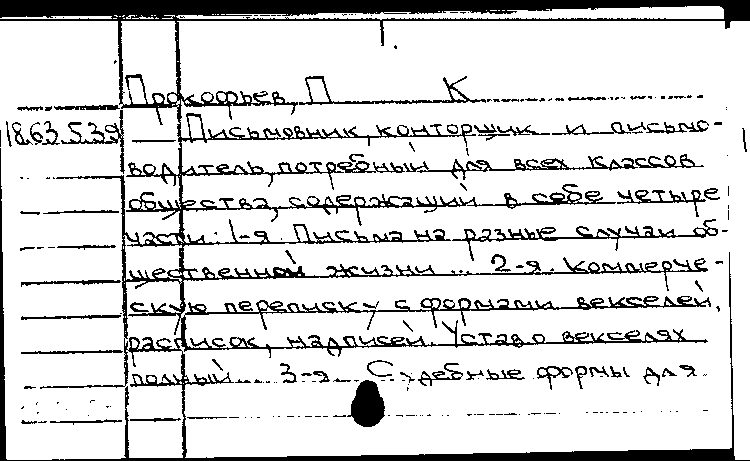 1.
Прокофьев, П К
18.63.5.39 Письмовник, конторщик и письмо-
водитель, потребный для всех классов
общества, содержащий в себе четыре
части: 1-я. Письма на разные случаи об-
щественной жизни ... 2-я. Коммерче-
скую переписку с формами векселей,
расписок, надписей. Устав о векселях
полный... 3-я. Судебные формы для